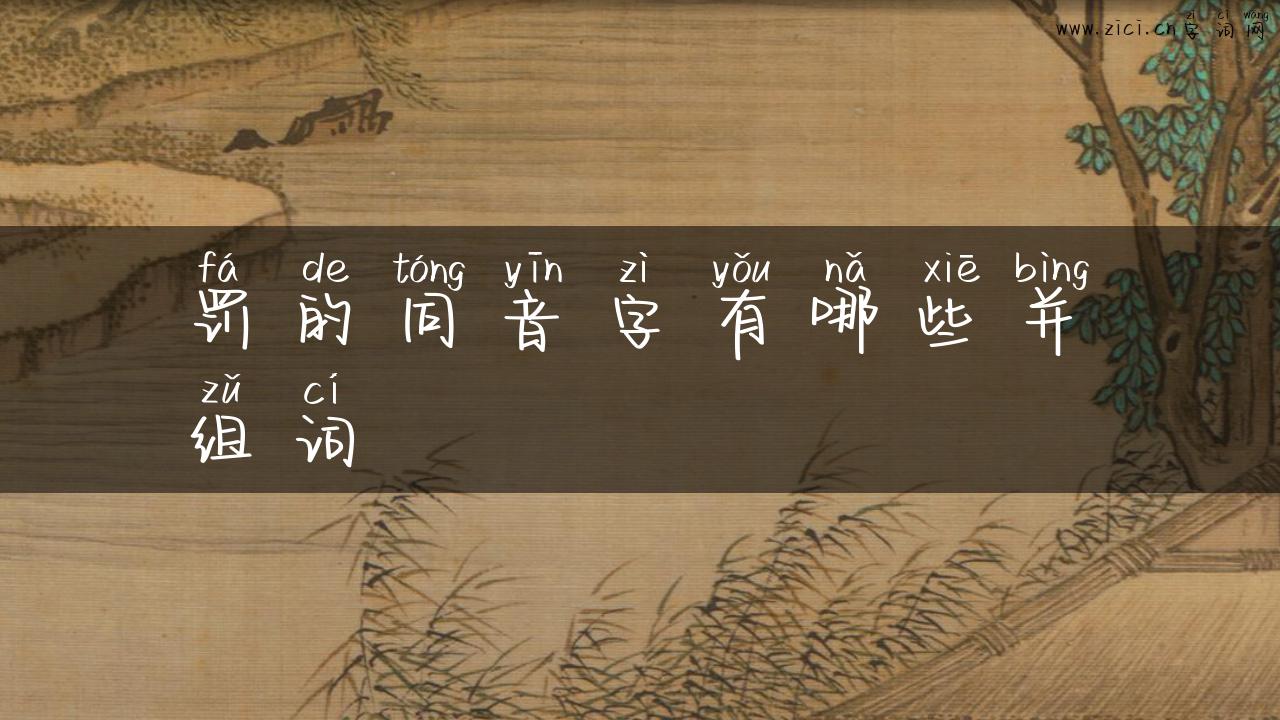 zì cí wǎng
www.zici.cn字词网
fá de tóng yīn zì yǒu nǎ xiē bìng
罚的同音字有哪些并
zǔ cí
组词